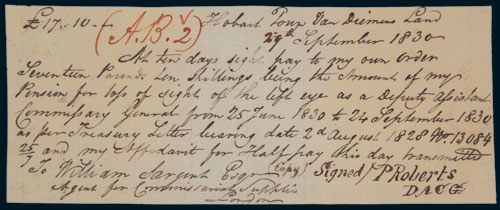 £17.10.- (A.B.2) Hobart Town Van Diemens Land
29th September 1830
At ten days sight pay to my own order
Seventeen Pounds ten Shillings being the Amount of my
Pension for loss of sight of the left eye as a Deputy Assistant
Commissary General from 25 June 1830 to 24 September 1830
as per Treasury Letter bearing date 2d August 1828 No. 13084
25/7 and my Affidavit for Half pay this day transmitted
To William Sargent Esqr (Copy) Signed/ P Roberts
Agent for Commissariat Supplies DACG
London